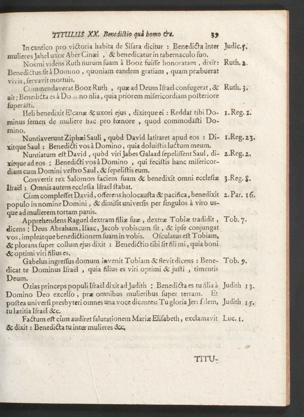 TITULUS XX. Benedictio quà homo &c. 39
In cantico pro victoria habita de Sisara dicitur : Benedicta inter Judic. 5.
mulieres Jahel uxor Aber Cinæi , & benedicatur in tabernaculo suo.
Noëmi videns Ruth nurum suam à Booz fuisse honoratam , dixit: Ruth. 2.
Benedictus sit à Domino , quoniam eandem gratiam , quam præbuerat
vivis, servavit mortuis.
Commendaverat Booz Ruth , quæ ad Deum Israël confugerat, & Ruth. 3.
ait: Benedicta es à Domino filia , quia priorem misericordiam posteriore
superasti.
Heli benedixit Elcanæ & uxori ejus , dixitque ei : Reddat tibi Do- 1. Reg. 2.
minus semen de muliere hac pro fœnore , quod commodasti Do-
mino.
Nuntiaverunt Ziphæi Sauli , quòd David latitaret apud eos : Di- 1. Reg. 23.
xitque Saul : Benedicti vos à Domino, quia doluistis luctum meum.
Nuntiatum est David , quòd viri Jabes Galaad sepelissent Saul , di- 2. Reg. 2.
xitque ad eos : Benedicti vos à Domino , qui fecistis hanc misericor-
diam cum Domini vestro Saul, & sepelistis eum.
Convertit rex Salomon faciem suam & benedixit omni ecclesiæ 3. Reg. 8.
Israël : Omnis autem ecclesia Israël stabat.
Cùm complesset David , offerens holocausta & pacifica , benedixit 2. Par. 16.
populo in nomine Domini , & divisit universis per singulos à viro us-
que ad mulierem tortam panis.
Apprehendens Raguel dextram filiæ suæ , dextræ Tobiæ tradidit , Tob. 7.
dicens : Deus Abraham, Isaac, Jacob vobiscum sit , & ipse conjungat
vos, impleatque benedictionem suam in vobis. Osculatur est Tobiam,
& plorans super collum ejus dixit : Benedictio tibi sit fili mi, quia boni
& optimi viri filius es.
Gabelus ingressus domum invenit Tobiam & flevit dicens : Bene- Tob. 9.
dicat te Dominus Israel , quia filius es viri optimi & justi , timentis
Deum.
Ozias princeps populi Israël dixit ad Judith : Benedicta es tu filia à Judith 13.
Domino Deo excelso , præ omnibus mulieribus super terram. Et
postea universi presbyteri omnes una voce dicentes: Tu gloria Jerusalem, Judith 15.
tu lætitia Israël &c.
Factum est cùm audiret salutationem Mariæ Elisabeth, exclamavit Luc. 1.
& dixit : Benedicta tu inter mulieres &c.
TITU-